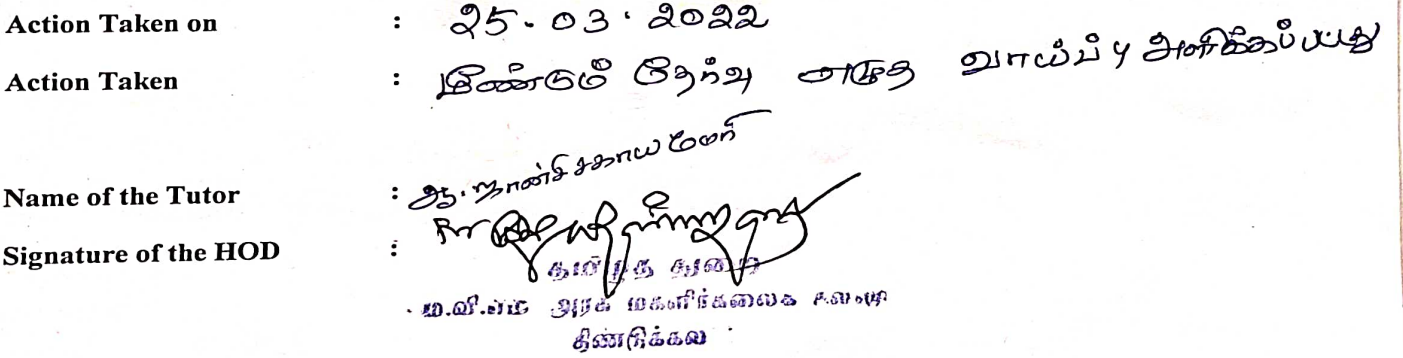 Action Taken on : 25.03.2022
Action Taken : மீண்டும் தேர்வு எழுத வாய்ப்பு அளிக்கப்பட்டது
Name of the Tutor : ஆ. நான்சி சகாய மேரி
Signature of the HOD :
தமிழ்த் துறை
ம.வி.மு அரசு மகளிர்கலைக் கல்லூரி
திண்டுக்கல்